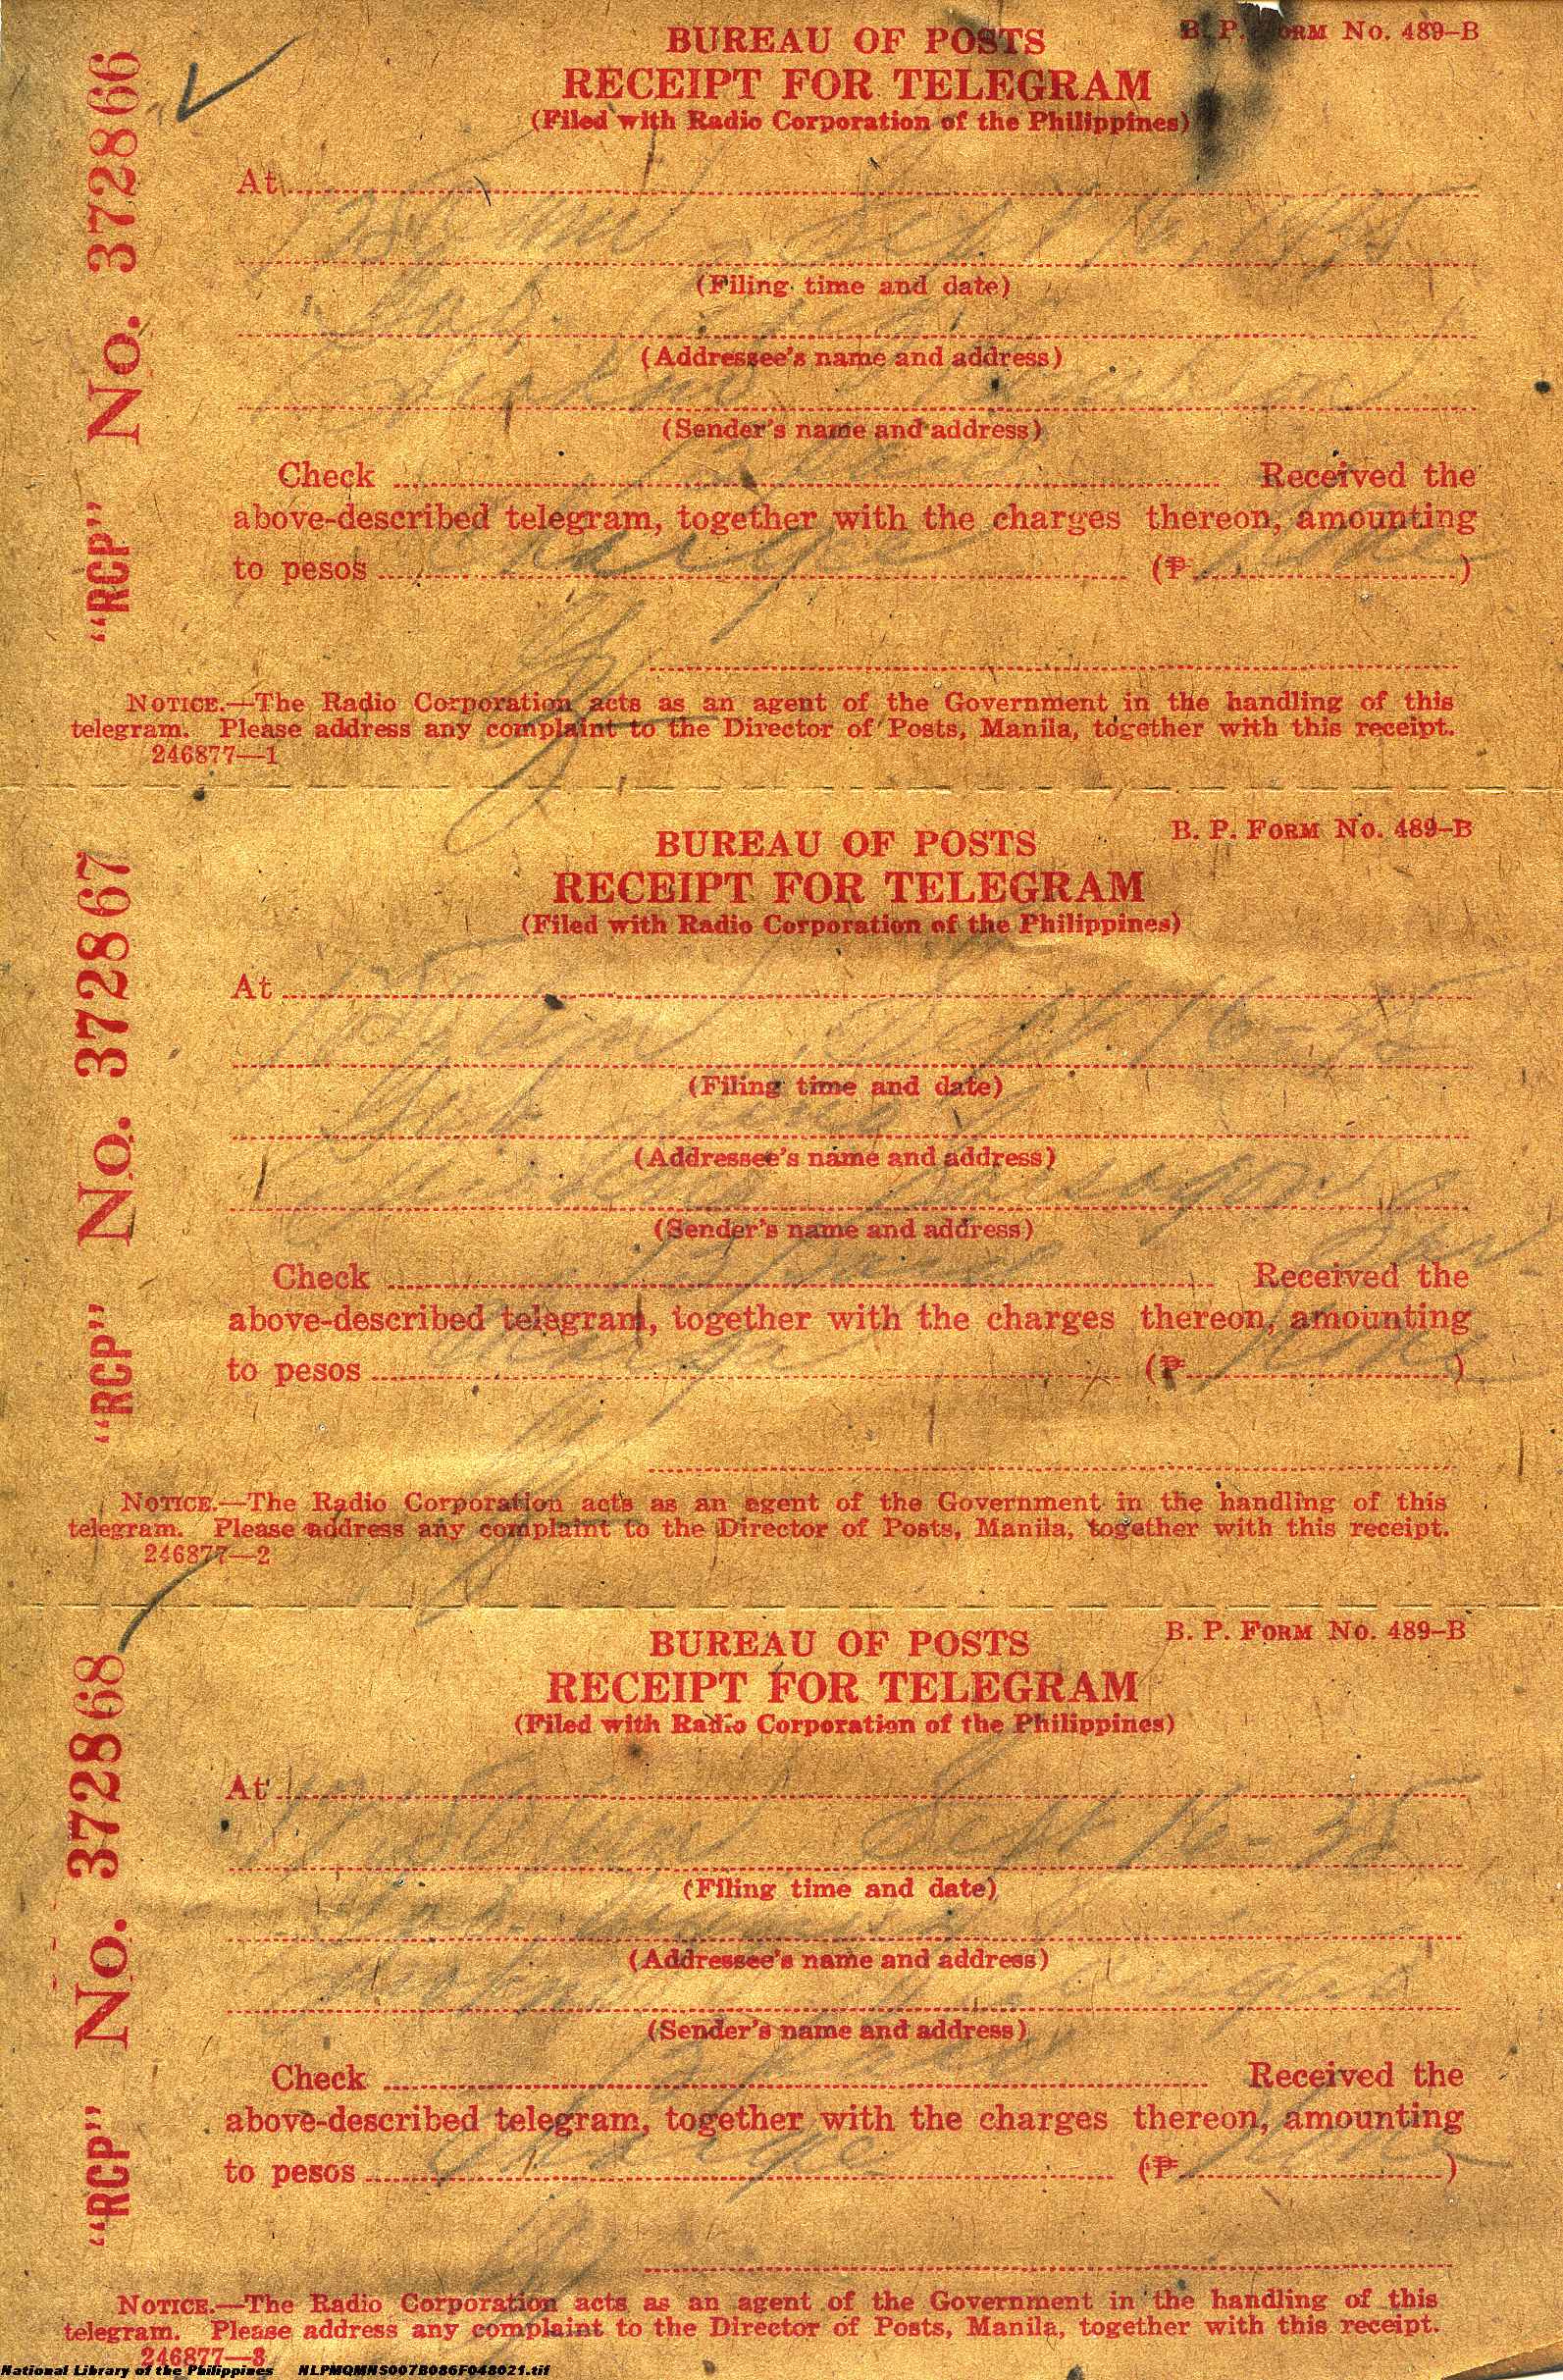 "RCP" No. 372866
B. P. FORM No. 489–B
BUREAU OF POSTS
RECEIPT FOR TELEGRAM
(Filed with Radio Corporation of the Philippines)
At
Sept 16,
(Filing time and date)
(Addressee's name and address)
(Sender's name and address)
Check Received the
above-described telegram, together with the charges thereon, amounting
to pesos charge (₱ None )
NOTICE.—The Radio Corporation acts as an agent of the Government in the handling of this
telegram. Please address any complaint to the Director of Posts, Manila, together with this receipt.
246877—1
"RCP" No. 372867
B. P. FORM No. 489–B
BUREAU OF POSTS
RECEIPT FOR TELEGRAM
(Filed with Radio Corporation of the Philippines)
At
Sept 16-35
(Filing time and date)
(Addressee's name and address)
(Sender's name and address)
Check Received the
above-described telegram, together with the charges thereon, amounting
to pesos charge (₱ None )
NOTICE.—The Radio Corporation acts as an agent of the Government in the handling of this
telegram. Please address any complaint to the Director of Posts, Manila, together with this receipt.
246877—2
"RCP" No. 372868
B. P. FORM No. 489–B
BUREAU OF POSTS
RECEIPT FOR TELEGRAM
(Filed with Radio Corporation of the Philippines)
At
Sept 16-35
(Filing time and date)
(Addressee's name and address)
(Sender's name and address)
Check Received the
above-described telegram, together with the charges thereon, amounting
to pesos charge (₱ None )
NOTICE.—The Radio Corporation acts as an agent of the Government in the handling of this
telegram. Please address any complaint to the Director of Posts, Manila, together with this receipt.
246877—3
National Library of the Philippines NLPMQMNS007B086F048021.tif